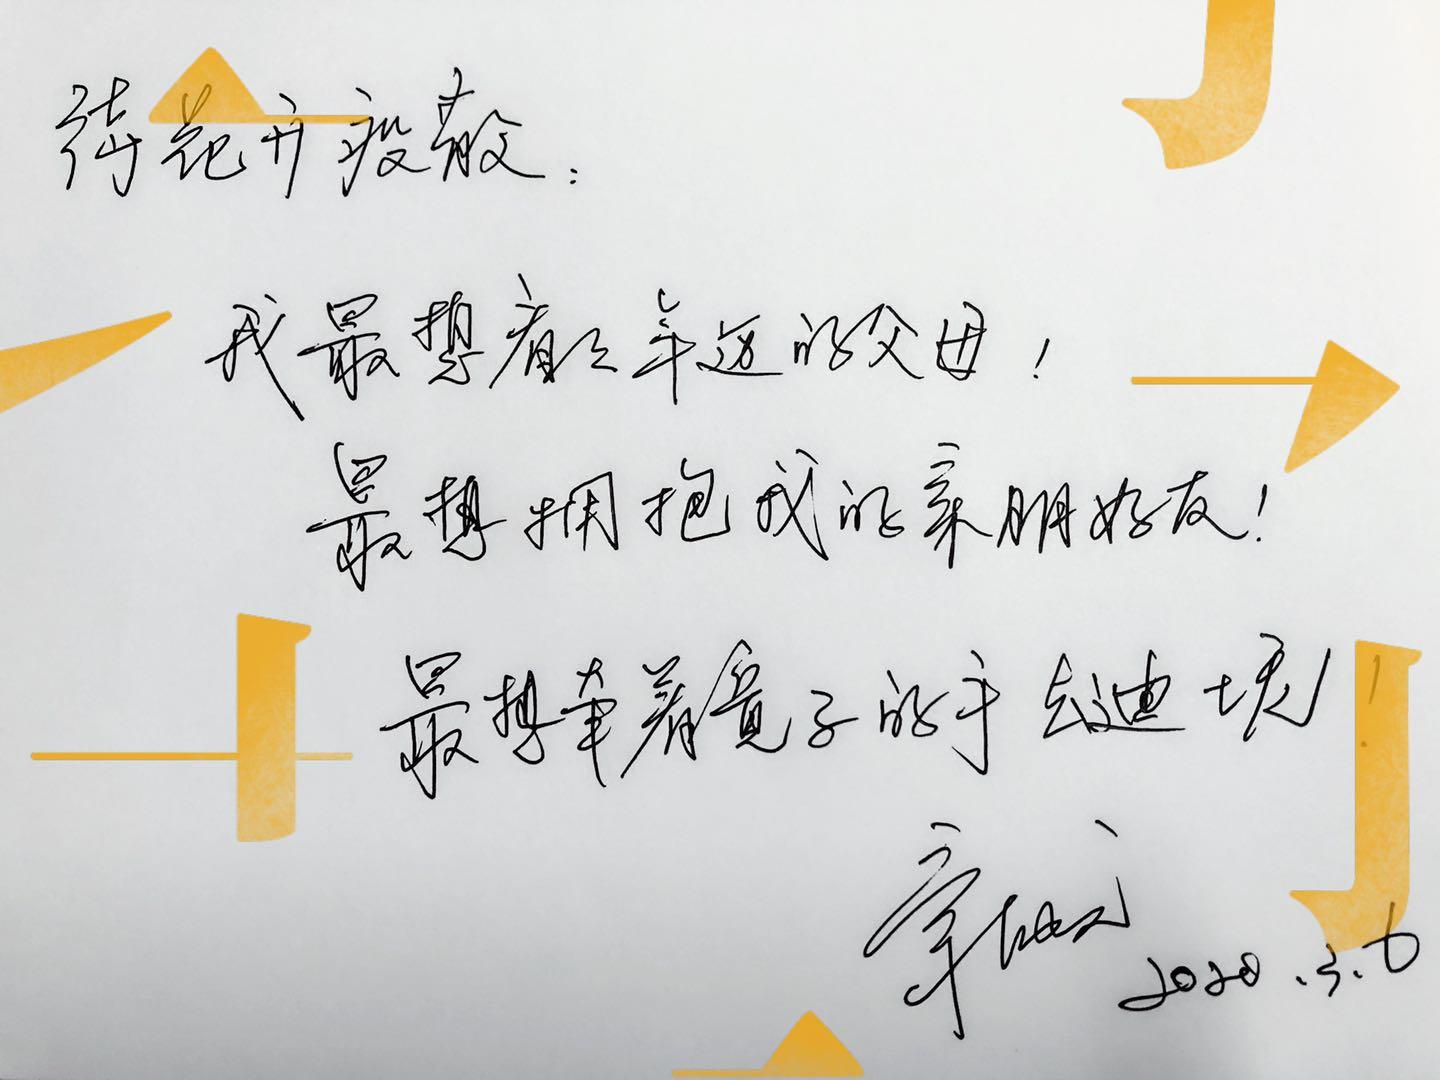 待花开疫散：
我最想看看年迈的父母！
最想拥抱我的亲朋好友！
最想牵着子的手去迪士尼！
2020.3.6